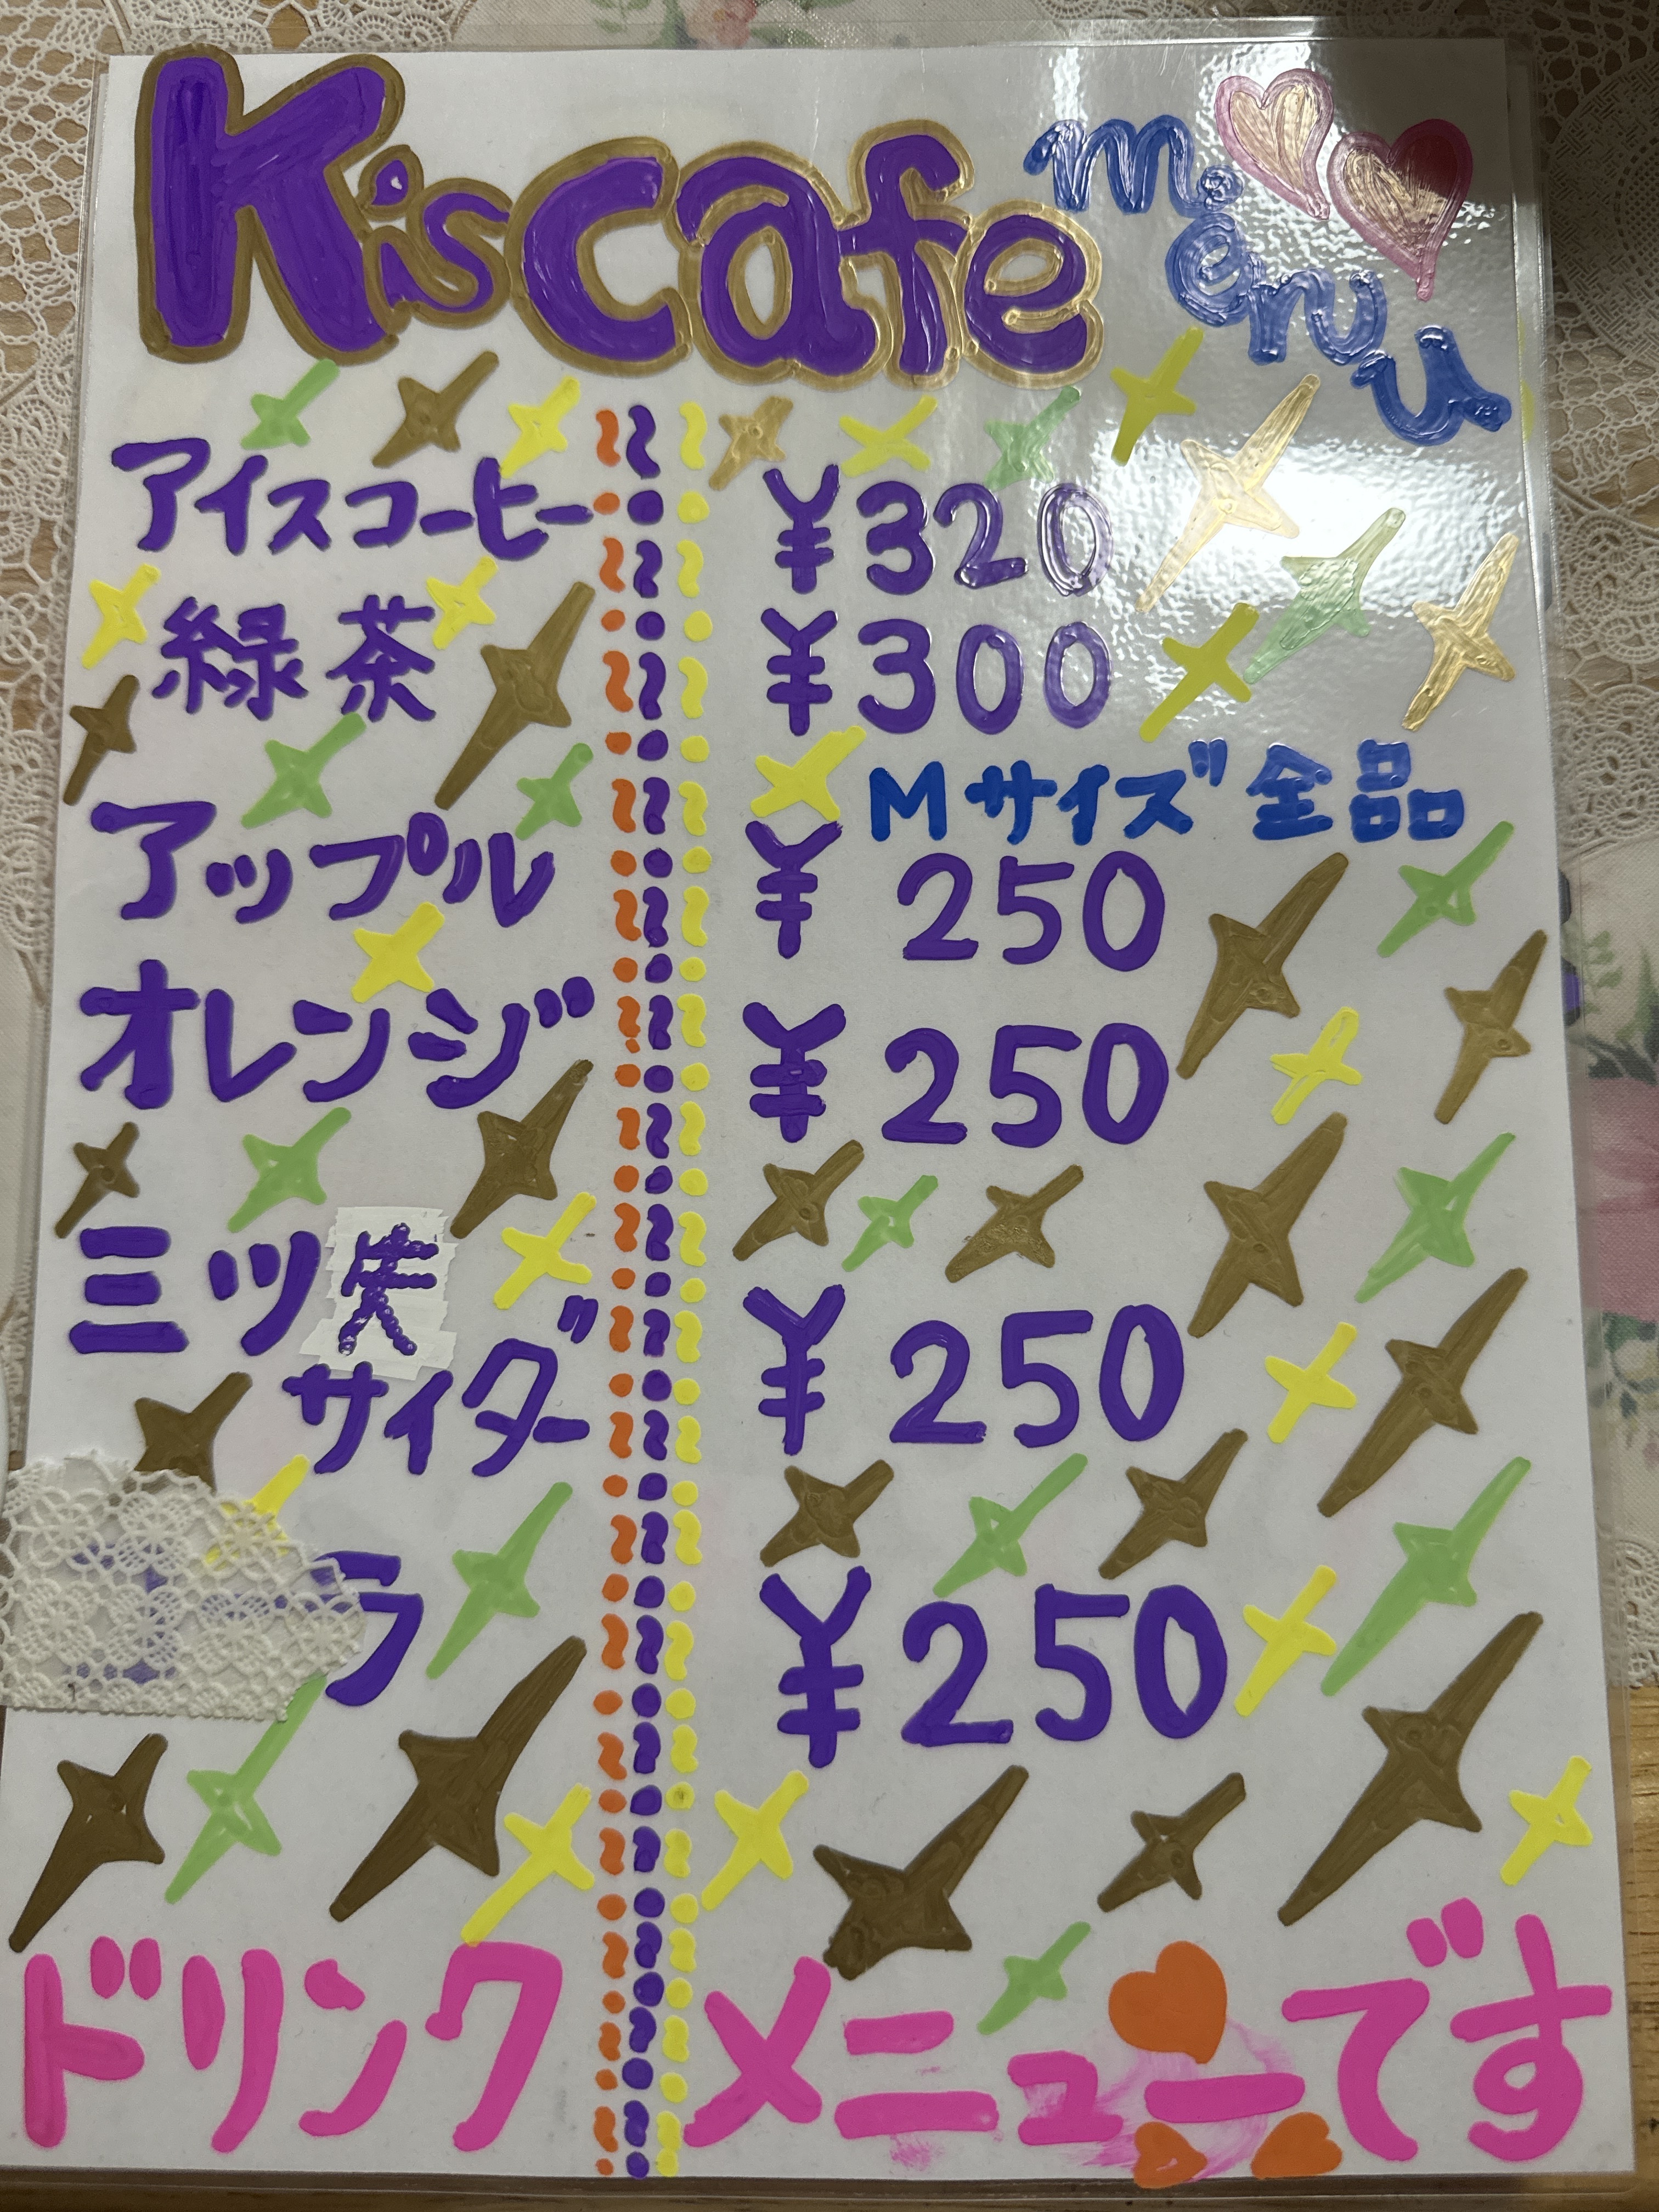 K's cafe menu
アイスコーヒー ¥320
緑茶 ¥300
Mサイズ全品
アップル ¥250
オレンジ ¥250
三ツ矢
サイダー ¥250
ラ ¥250
ドリンクメニューです